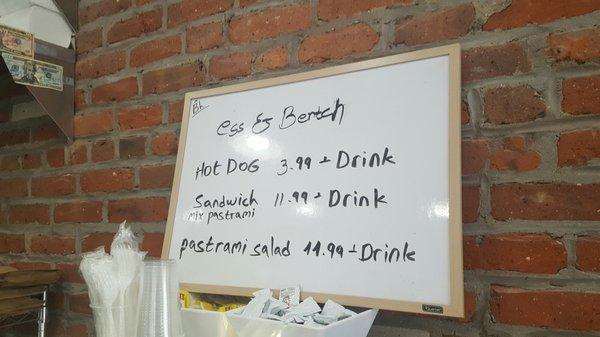 Bh
ess & Bentch
HOT DOG 3.99 + Drink
Sandwich 11.99 + Drink
mix pastrami
pastrami salad 11.99 + Drink